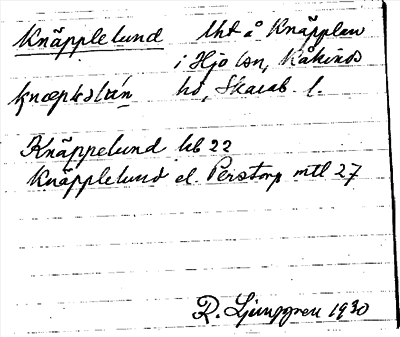 Knäpplelund lht å Knäpplan
i Hjo lsn, Kåkinds
hd, Skarab. l.
Knäppelund hb 22
Knäpplelund el. Perstorp mtl 27
R. Ljunggren 1930